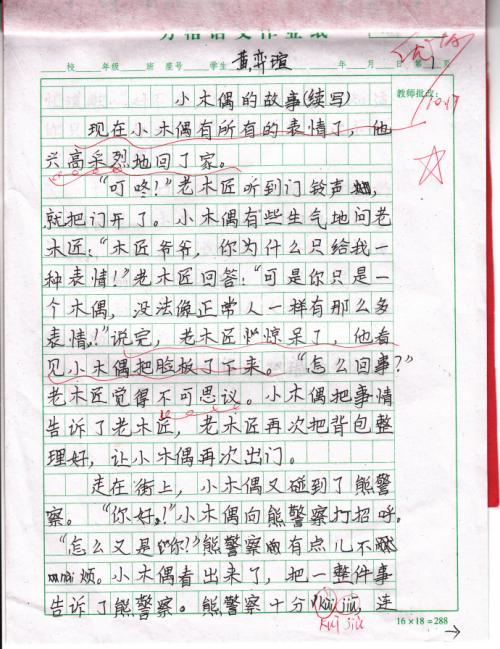 方格语文作业纸
校 年级 班 座号 学生 黄弈瑄 年 月 日 第 页
教师批改:
10.17
小木偶的故事(续写)
现在小木偶有所有的表情了，他
兴高采烈地回了家。
“叮咚!”老木匠听到门铃声,
就把门开了。小木偶有些生气地问老
木匠:“木匠爷爷，你为什么只给我一
种表情!”老木匠回答:“可是你只是一
个木偶，没法像正常人一样有那么多
表情!”说完，老木匠惊呆了，他看
见小木偶把脸板了下来。“怎么回事?”
老木匠觉得不可思议。小木偶把事情
告诉了老木匠，老木匠再次把背包整
理好，让小木偶再次出门。
走在街上，小木偶又碰到了熊警
察。“你好!”小木偶向熊警察打招呼。
“怎么又是你?”熊警察有点儿不
nài烦。小木偶看出来了，把一整件事
告诉了熊警察。熊警察十分kuì jiù，连
kuì jiù
16×18=288